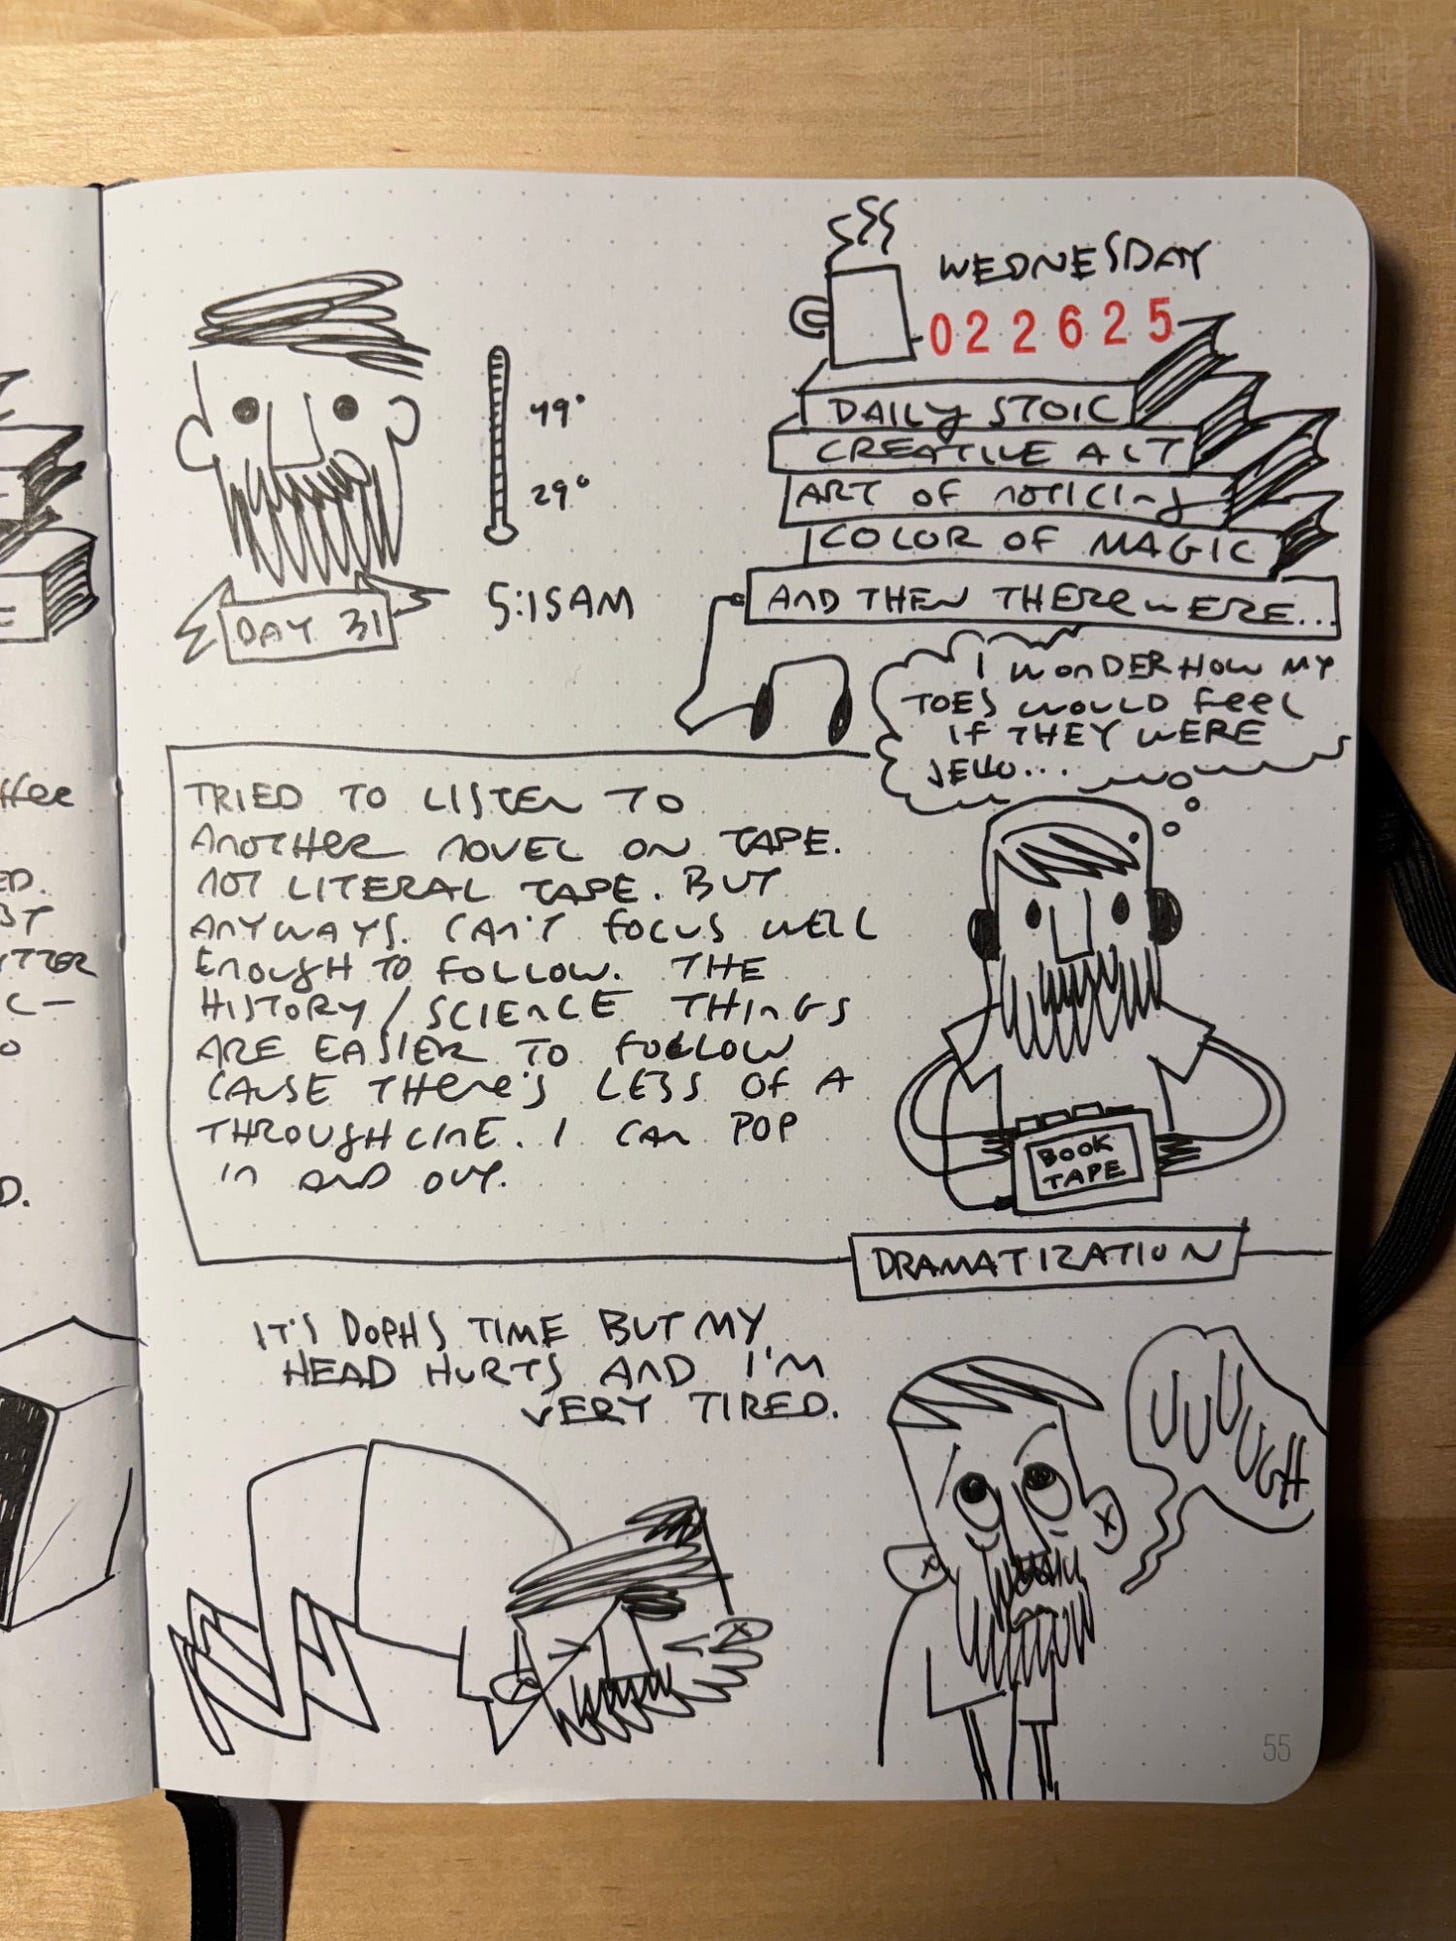 WEDNESDAY
022625
DAILY STOIC
CREATIVE ACT
ART OF NOTICING
COLOR OF MAGIC
AND THEN THERE WERE...
49°
29°
5:15AM
DAY 31
I WONDER HOW MY
TOES WOULD FEEL
IF THEY WERE
JELLO...
TRIED TO LISTEN TO
ANOTHER NOVEL ON TAPE.
NOT LITERAL TAPE. BUT
ANYWAYS. CAN'T FOCUS WELL
ENOUGH TO FOLLOW. THE
HISTORY/SCIENCE THINGS
ARE EASIER TO FOLLOW
CAUSE THERE'S LESS OF A
THROUGHLINE. I CAN POP
IN AND OUT.
BOOK
TAPE
DRAMATIZATION
IT'S DOPHS TIME BUT MY
HEAD HURTS AND I'M
VERY TIRED.
UUUUGH
55
ffee
ED.
ST
TTER
C-
O
D.
E